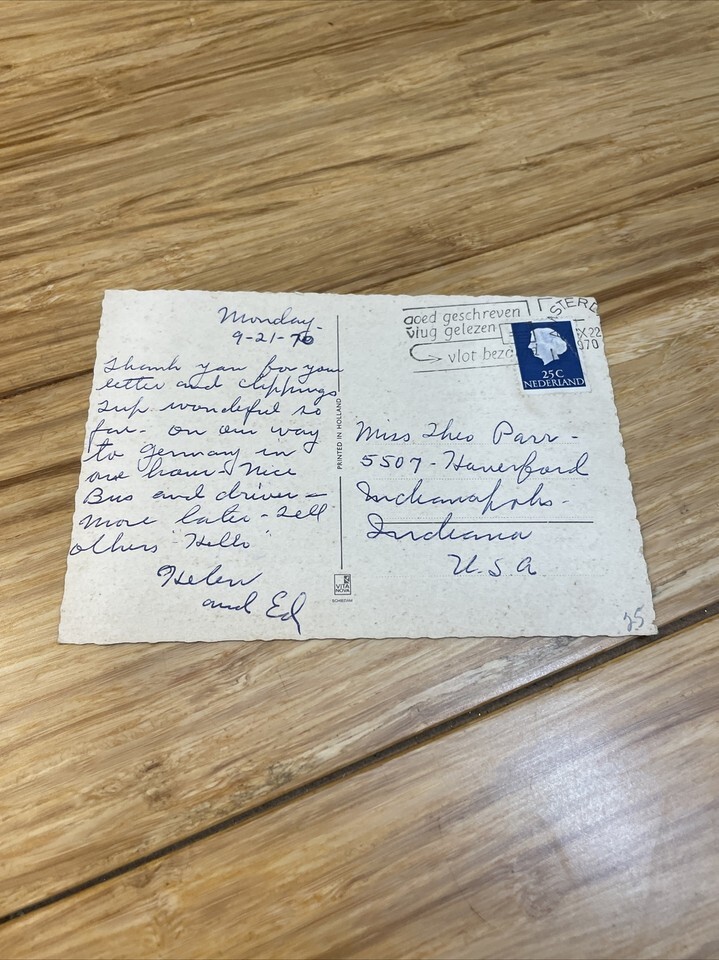 Monday-
9-21-70
Thank you for your
letter and clippings
Trip wonderful so
far - on our way
to Germany in
one hour - Nice
Bus and driver -
More later - Tell
others "Hello"
Helen
and Ed
PRINTED IN HOLLAND
VITA
NOVA
SCHIEDAM
goed geschreven
vlug gelezen
vlot
970
25C
NEDERLAND
Miss Theo Parr -
5507 - Haverford
Indianapolis -
Indiana
U.S.A
25